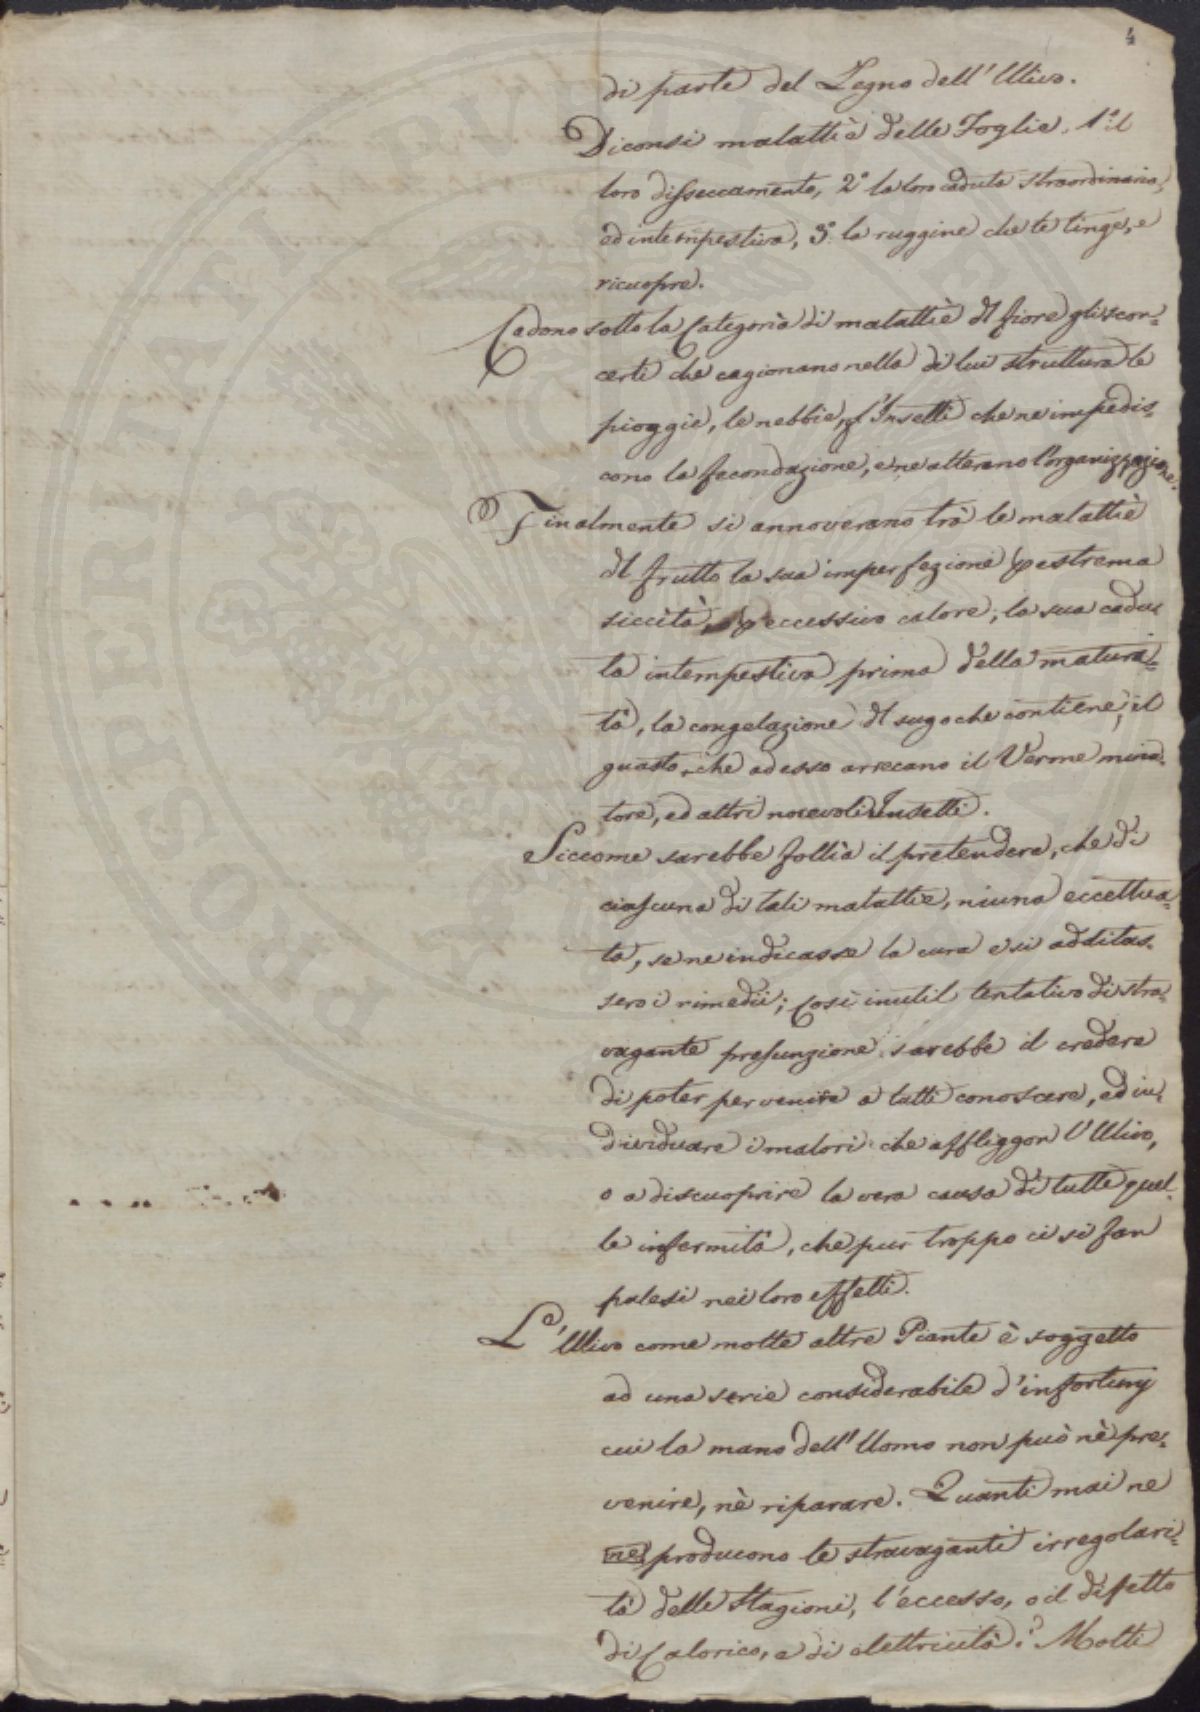 4
di parte del Legno dell'Ulivo.
Diconsi malattie delle Foglie, 1.º il
loro disseccamento, 2º la loro caduta straordinaria,
ed intempestiva, 3º la ruggine che le tinge, e
ricuopre.
Cadono sotto la Categoria di malattie dl fiore gli scon-
certi che cagionano nella di lui struttura le
pioggie, le nebbie, gl'Insetti che ne impedis-
cono la fecondazione, e ne alterano l'organizzazione.
Finalmente si annoverano trà le malattie
dl frutto la sua imperfezione p estrema
siccità, p eccessivo calore, la sua cadu-
ta intempestiva prima della maturi-
tà, la congelazione dl sugo che contiene, il
guasto, che ad esso arrecano il Verme mina-
tore, ed altri nocevoli Insetti.
Siccome sarebbe follia il pretendere, che di
ciascuna di tali malattie, niuna eccettua-
ta, se ne indicasse la cura e si additas-
sero i rimedii; Così inutil tentativo di stra-
vagante presunzione sarebbe il credere
di poter pervenire a tutti conoscere, ed in-
dividuare i malori che affliggon l'Ulivo,
o a discuoprire la vera causa di tutte quel-
le infermità, che pur troppo ci si fan
palesi nei loro effetti.
L'Ulivo come molte altre Piante è soggetto
ad una serie considerabile d'infortunj
cui la mano dell'Uomo non può nè pre-
venire, nè riparare. Quanti mai ne
ne producono le stravaganti irregolari-
tà delle Stagioni, l'eccesso, o il difetto
di Calorico, e di elettricità? Molti
PROSPERITATI PVBLICAE